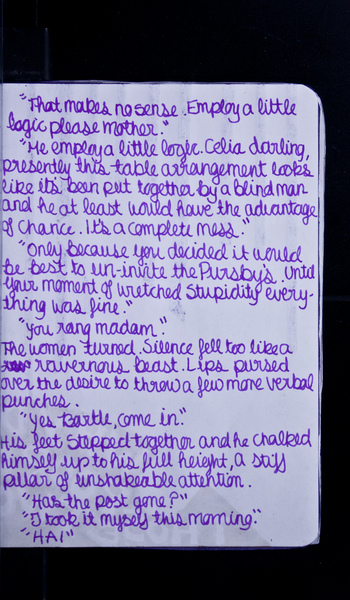 "That makes no sense. Employ a little
logic please mother."
"Me employ a little logic. Celia darling,
presently this table arrangement looks
like its been put together by a blind man
and he at least would have the advantage
of chance. It's a complete mess."
"Only because you decided it would
be best to un-invite the Pursby's. Until
your moment of wretched stupidity every-
thing was fine."
"You rang madam."
The women turned. Silence fell too like a
ravernous beast. Lips pursed
over the desire to throw a few more verbal
punches.
"Yes Bartle, come in."
His feet stepped together and he chalked
himself up to his full height, a stiff
pillar of unshakeable attention.
"Has the post gone?"
"I took it myself this morning."
"HA!"